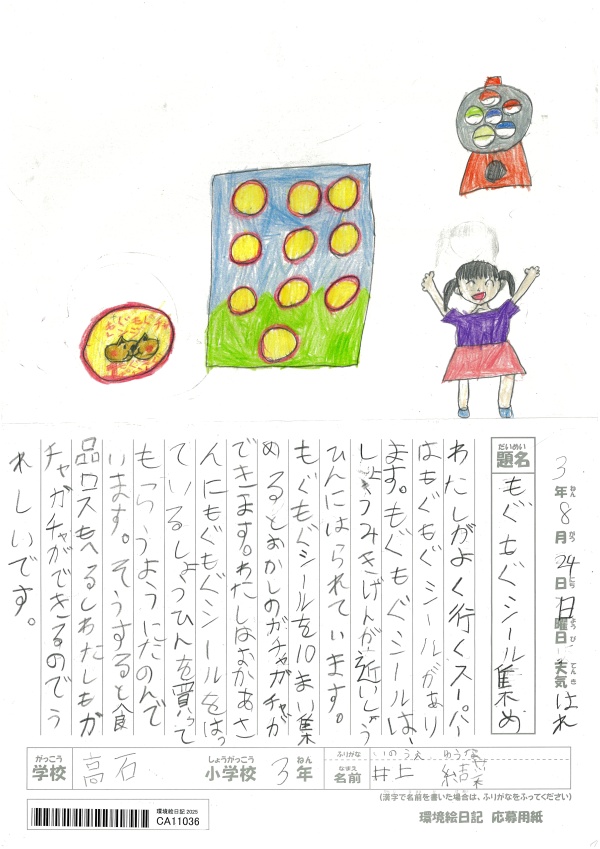 もぐもぐチャレンジ
3年8月24日日曜日天気はれ
ねん がつ にち ようび てんき
だいめい
題名
もぐもぐシール集め
わたしがよく行くスーパー
はもぐもぐシールがあり
ます。もぐもぐシールは、
しょうみきげんが近いしょう
ひんにはられています。
もぐもぐシールを10まい集
めるとおかしのガチャガチャが
できます。わたしはおかあさ
んにもぐもぐシールをはっ
ているしょうひんを買って
もらうようにたのんで
います。そうすると食
品ロスもへるしわたしもガ
チャガチャができるのでう
れしいです。
がっこう
学校
高石
しょうがっこう
小学校
3年
ねん
ふりがな
いのうえ ゆうな
なまえ
名前
井上 結菜
(漢字で名前を書いた場合は、ふりがなをふってください)
環境絵日記 2025
CA11036
環境絵日記 応募用紙